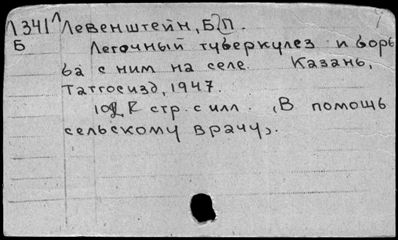 1341 Левенштейн, Б. П.
Б Легочный туберкулез и борь
ба с ним на селе. Казань,
Татгосизд, 1947.
стр. с илл. (В помощь
сельскому врачу).